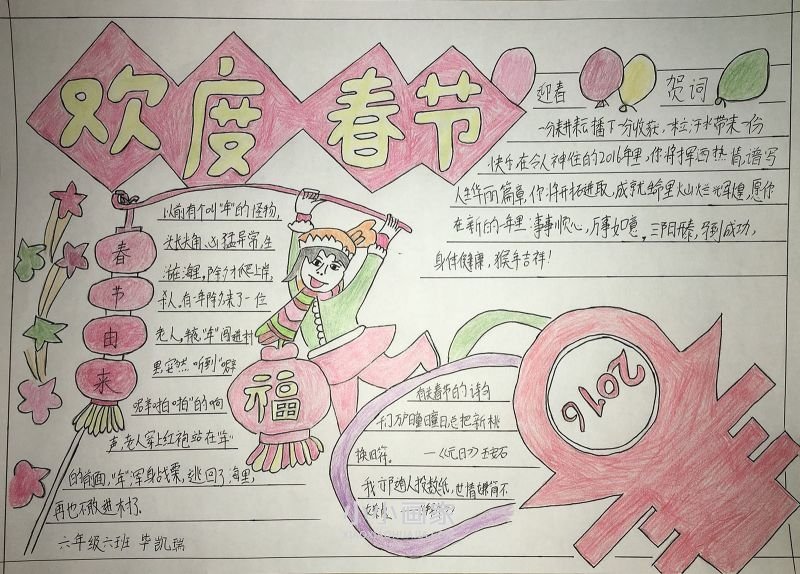 欢度春节
迎春 贺词
一分耕耘播下一分收获,一粒汗水带来一份
快乐在令人神住的2016年里,你将挥洒热 谱写
人生华丽篇章,你将开拓进取,成就 里火山 煌,愿你
在新的一年里:事事顺心,万事如意。三阳开泰,马到成功,
身体健康,猴年吉祥!
春节由来
以前有个叫“年”的怪物,
头长大角,凶猛异常,生
活在海里,除夕才爬上岸,
杀人。有一年除夕来了一位
老人,半夜“年”闯进村
里突然听到“噼
啪啪”的响
声,老人穿上红袍站在“年”
的前面,“年”浑身战栗,逃回了海里,
再也不敢进村了.
六年级六班 毕凯瑞
福
2016
有关春节的诗句
千门万户曈曈日总把新桃
换旧符。 —《元日》王安石
我亦随人投数纸,世情嫌简不
小小画家